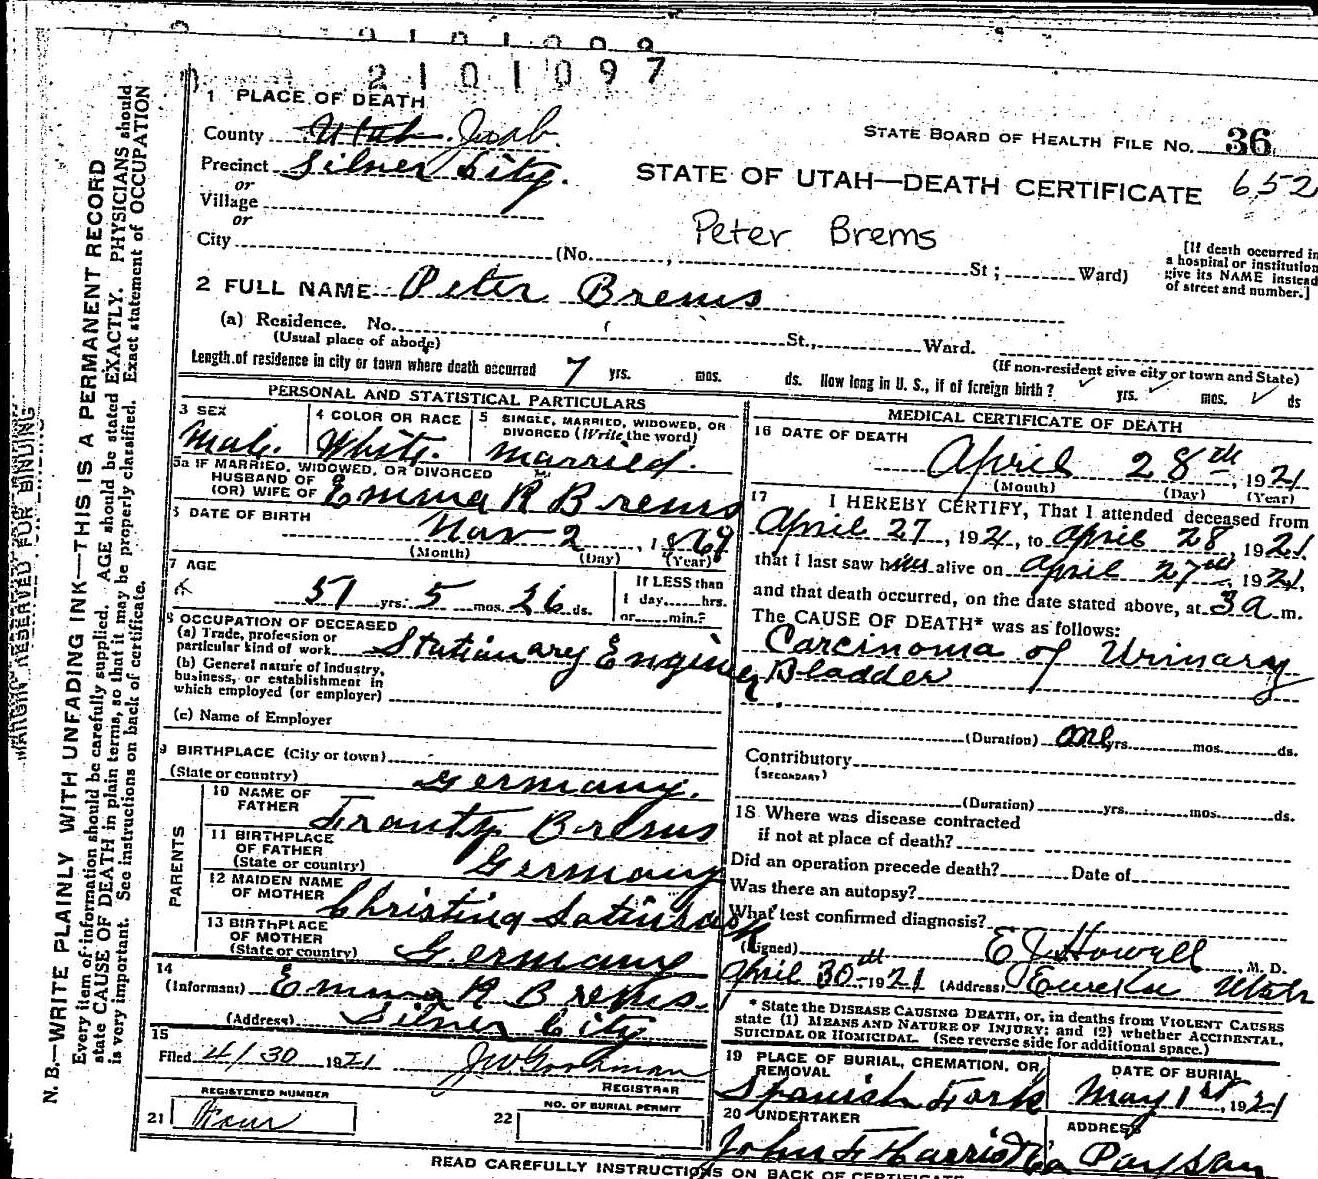 2101097
1 PLACE OF DEATH
County Utah Juab
STATE BOARD OF HEALTH FILE NO. 36
Precinct Silver City.
STATE OF UTAH—DEATH CERTIFICATE 652
or
Village
or
Peter Brems
City (No. , St; Ward)
[If death occurred in
a hospital or institution
give its NAME instead
of street and number.]
2 FULL NAME Peter Brems
(a) Residence. No. St., Ward.
(Usual place of abode) (If non-resident give city or town and State)
Length of residence in city or town where death occurred 7 yrs. mos. ds. How long in U. S., if of foreign birth? yrs. mos. ds
PERSONAL AND STATISTICAL PARTICULARS
3 SEX 4 COLOR OR RACE 5 SINGLE, MARRIED, WIDOWED, OR
DIVORCED (Write the word)
Male. White. Married.
5a IF MARRIED, WIDOWED, OR DIVORCED
HUSBAND OF
(OR) WIFE OF Emma R Brems
6 DATE OF BIRTH Nov 2, 1869
(Month) (Day) (Year)
7 AGE
57 yrs. 5 mos. 26 ds.
If LESS than
1 day, hrs.
or min.?
8 OCCUPATION OF DECEASED
(a) Trade, profession or
particular kind of work Stationary Engineer
(b) General nature of industry,
business, or establishment in
which employed (or employer)
(c) Name of Employer
9 BIRTHPLACE (City or town)
(State or country) Germany.
PARENTS
10 NAME OF
FATHER Frantz Brems
11 BIRTHPLACE
OF FATHER
(State or country) Germany
12 MAIDEN NAME
OF MOTHER Christina
13 BIRTHPLACE
OF MOTHER
(State or country) Germany
14
(Informant) Emma R Brems.
(Address) Silver City
15
Filed 4/30 1921 REGISTRAR
REGISTERED NUMBER
21 Four
NO. OF BURIAL PERMIT
22
MEDICAL CERTIFICATE OF DEATH
16 DATE OF DEATH
April 28th, 1921
(Month) (Day) (Year)
17 I HEREBY CERTIFY, That I attended deceased from
April 27, 1921, to April 28, 1921.
that I last saw him alive on April 27th, 1921,
and that death occurred, on the date stated above, at 3 a m.
The CAUSE OF DEATH* was as follows:
Carcinoma of Urinary
Bladder
(Duration) one yrs. mos. ds.
Contributory
(SECONDARY)
(Duration) yrs. mos. ds.
18 Where was disease contracted
if not at place of death?
Did an operation precede death? Date of
Was there an autopsy?
What test confirmed diagnosis?
(Signed) E J Howell M. D.
April 30th 1921 (Address) Eureka Utah
* State the DISEASE CAUSING DEATH, or, in deaths from VIOLENT CAUSES
state (1) MEANS AND NATURE OF INJURY; and (2) whether ACCIDENTAL,
SUICIDAL OR HOMICIDAL. (See reverse side for additional space.)
19 PLACE OF BURIAL, CREMATION, OR
REMOVAL
Spanish Fork
DATE OF BURIAL
May 1st, 1921
20 UNDERTAKER
John F Harris
ADDRESS
Payson
READ CAREFULLY INSTRUCTIONS ON BACK OF CERTIFICATE
MARGIN RESERVED FOR BINDING
N. B.—WRITE PLAINLY WITH UNFADING INK—THIS IS A PERMANENT RECORD
Every item of information should be carefully supplied. AGE should be stated EXACTLY. PHYSICIANS should
state CAUSE OF DEATH in plain terms, so that it may be properly classified. Exact statement of OCCUPATION
is very important. See instructions on back of certificate.